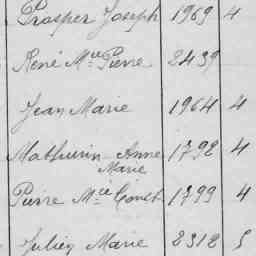 Prosper Joseph 1969 4
René Mie Pierre 2439
Jean Marie 1964 4
Mathurin Anne 1792 4
Marie
Pierre Mie 1799 4
Julien Marie 2312 5